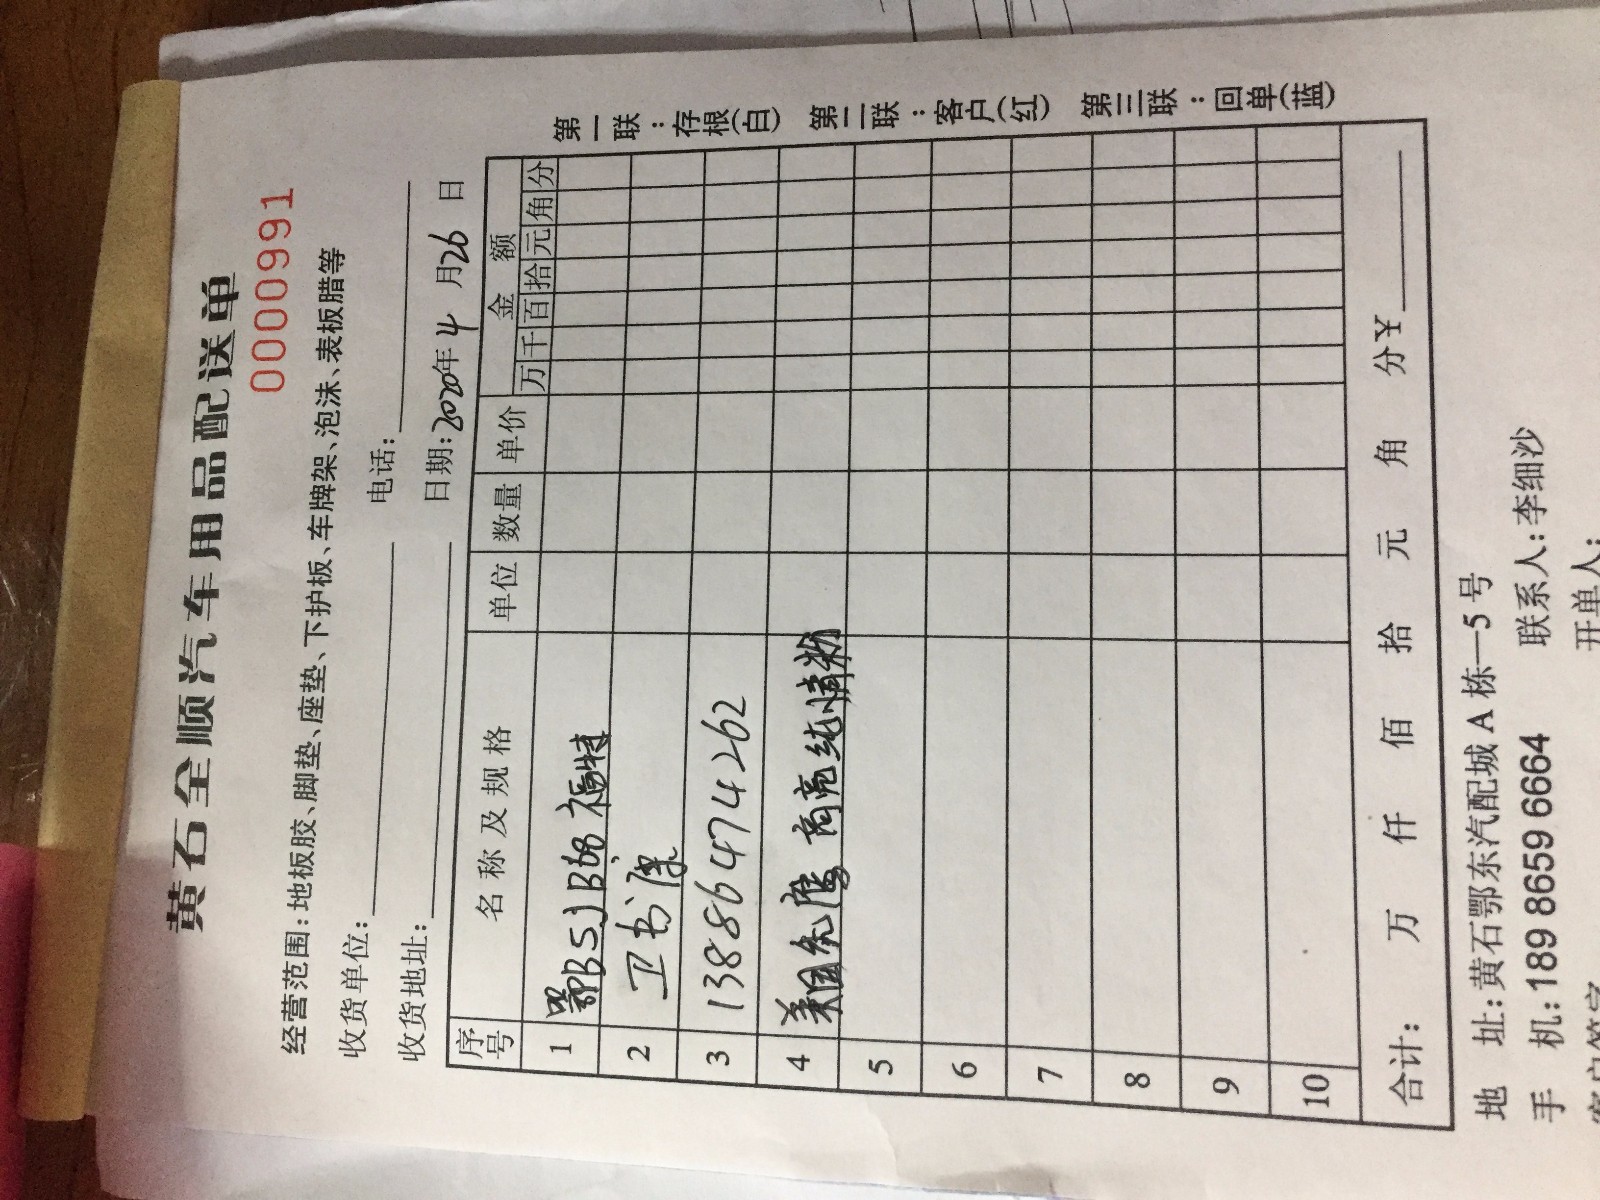 黄石全顺汽车用品配送单
0000991
经营范围:地板胶、脚垫、座垫、下护板、车牌架、泡沫、表板腊等
收货单位: 电话:
收货地址: 日期:2020年4月26日
序号 名称及规格 单位 数量 单价 金额
万 千 百 拾 元 角 分
1 鄂BSJB68 福特
2 卫书
3 13886474262
4 美国
5
6
7
8
9
10
合计: 万 仟 佰 拾 元 角 分¥
第一联:存根(白) 第二联:客户(红) 第三联:回单(蓝)
地 址:黄石鄂东汽配城A栋—5号
手 机:189 8659 6664 联系人:李细沙
客户签字 开单人: